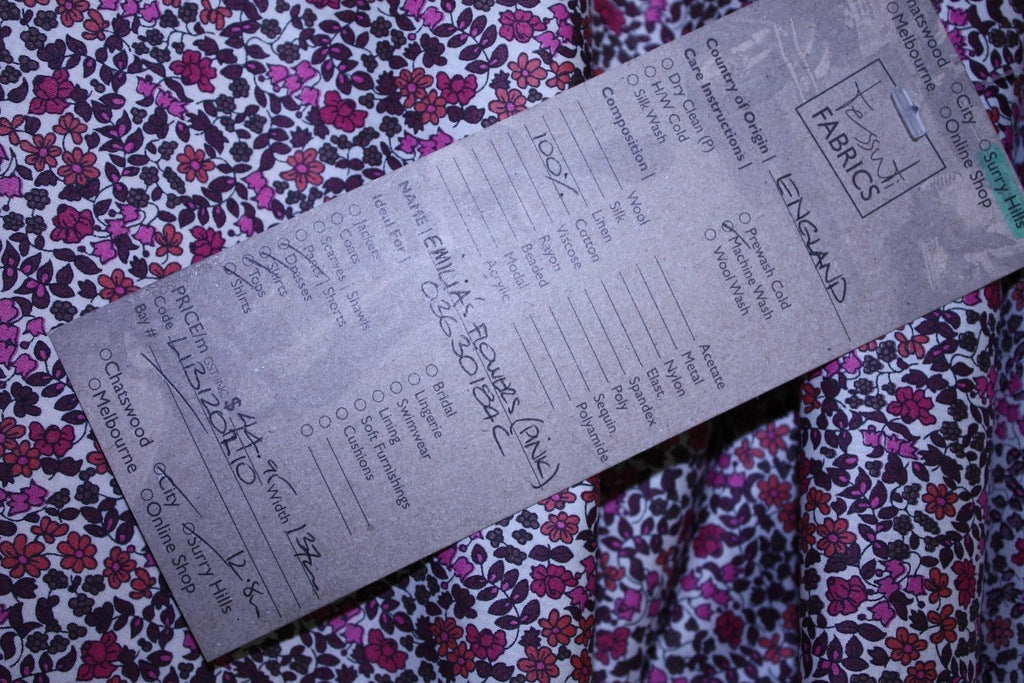 Chatswood
Melbourne
City
Online Shop
Surry Hills
Tessuti
FABRICS
Country of Origin | ENGLAND
Care Instructions |
Dry Clean (P)
H/W Cold
Silk Wash
Prewash Cold
Machine Wash
Wool Wash
Composition |
Wool
Silk
Linen
100% Cotton
Viscose
Rayon
Beaded
Modal
Acrylic
Acetate
Metal
Nylon
Elast.
Spandex
Poly
Sequin
Polyamide
NAME | EMILIA'S FLOWERS (PINK)
03630189 C
Ideal For |
Jackets
Coats
Scarves | Shawls
Pants | Shorts
Dresses
Skirts
Tops
Shirts
Bridal
Lingerie
Swimwear
Lining
Soft Furnishings
Cushions
PRICE/m GST INC $ 44.96 Width 137cm
Code LIB120TT10
Bay # 12.8m
Chatswood
Melbourne
City
Online Shop
Surry Hills